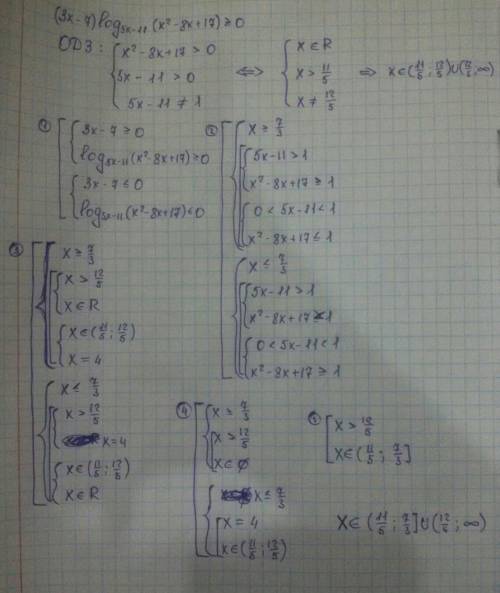 (3x-7)log₅ₓ₋₁₁(x²-8x+17)≥0
ОДЗ: { x²-8x+17>0 ⟺ { x∈R
5x-11>0 x>11/5 ⟹ x∈(11/5; 12/5)∪(12/5; ∞)
5x-11≠1 x≠12/5
① [ { 3x-7≥0
log₅ₓ₋₁₁(x²-8x+17)≥0
{ 3x-7≤0
log₅ₓ₋₁₁(x²-8x+17)≤0
② [ { x≥7/3
[ { 5x-11>1
x²-8x+17≥1
{ 0<5x-11<1
x²-8x+17≤1
{ x≤7/3
[ { 5x-11>1
x²-8x+17≤1
{ 0<5x-11<1
x²-8x+17≥1
③ [ { x≥7/3
[ { x>12/5
x∈R
{ x∈(11/5; 12/5)
x=4
{ x≤7/3
[ { x>12/5
x=4
{ x∈(11/5; 12/5)
x∈R
④ [ { x≥7/3
[ x>12/5
x∈∅
{ x≤7/3
[ x=4
x∈(11/5; 12/5)
⑤ [ x>12/5
x∈(11/5; 7/3]
x∈(11/5; 7/3]∪(12/5; ∞)